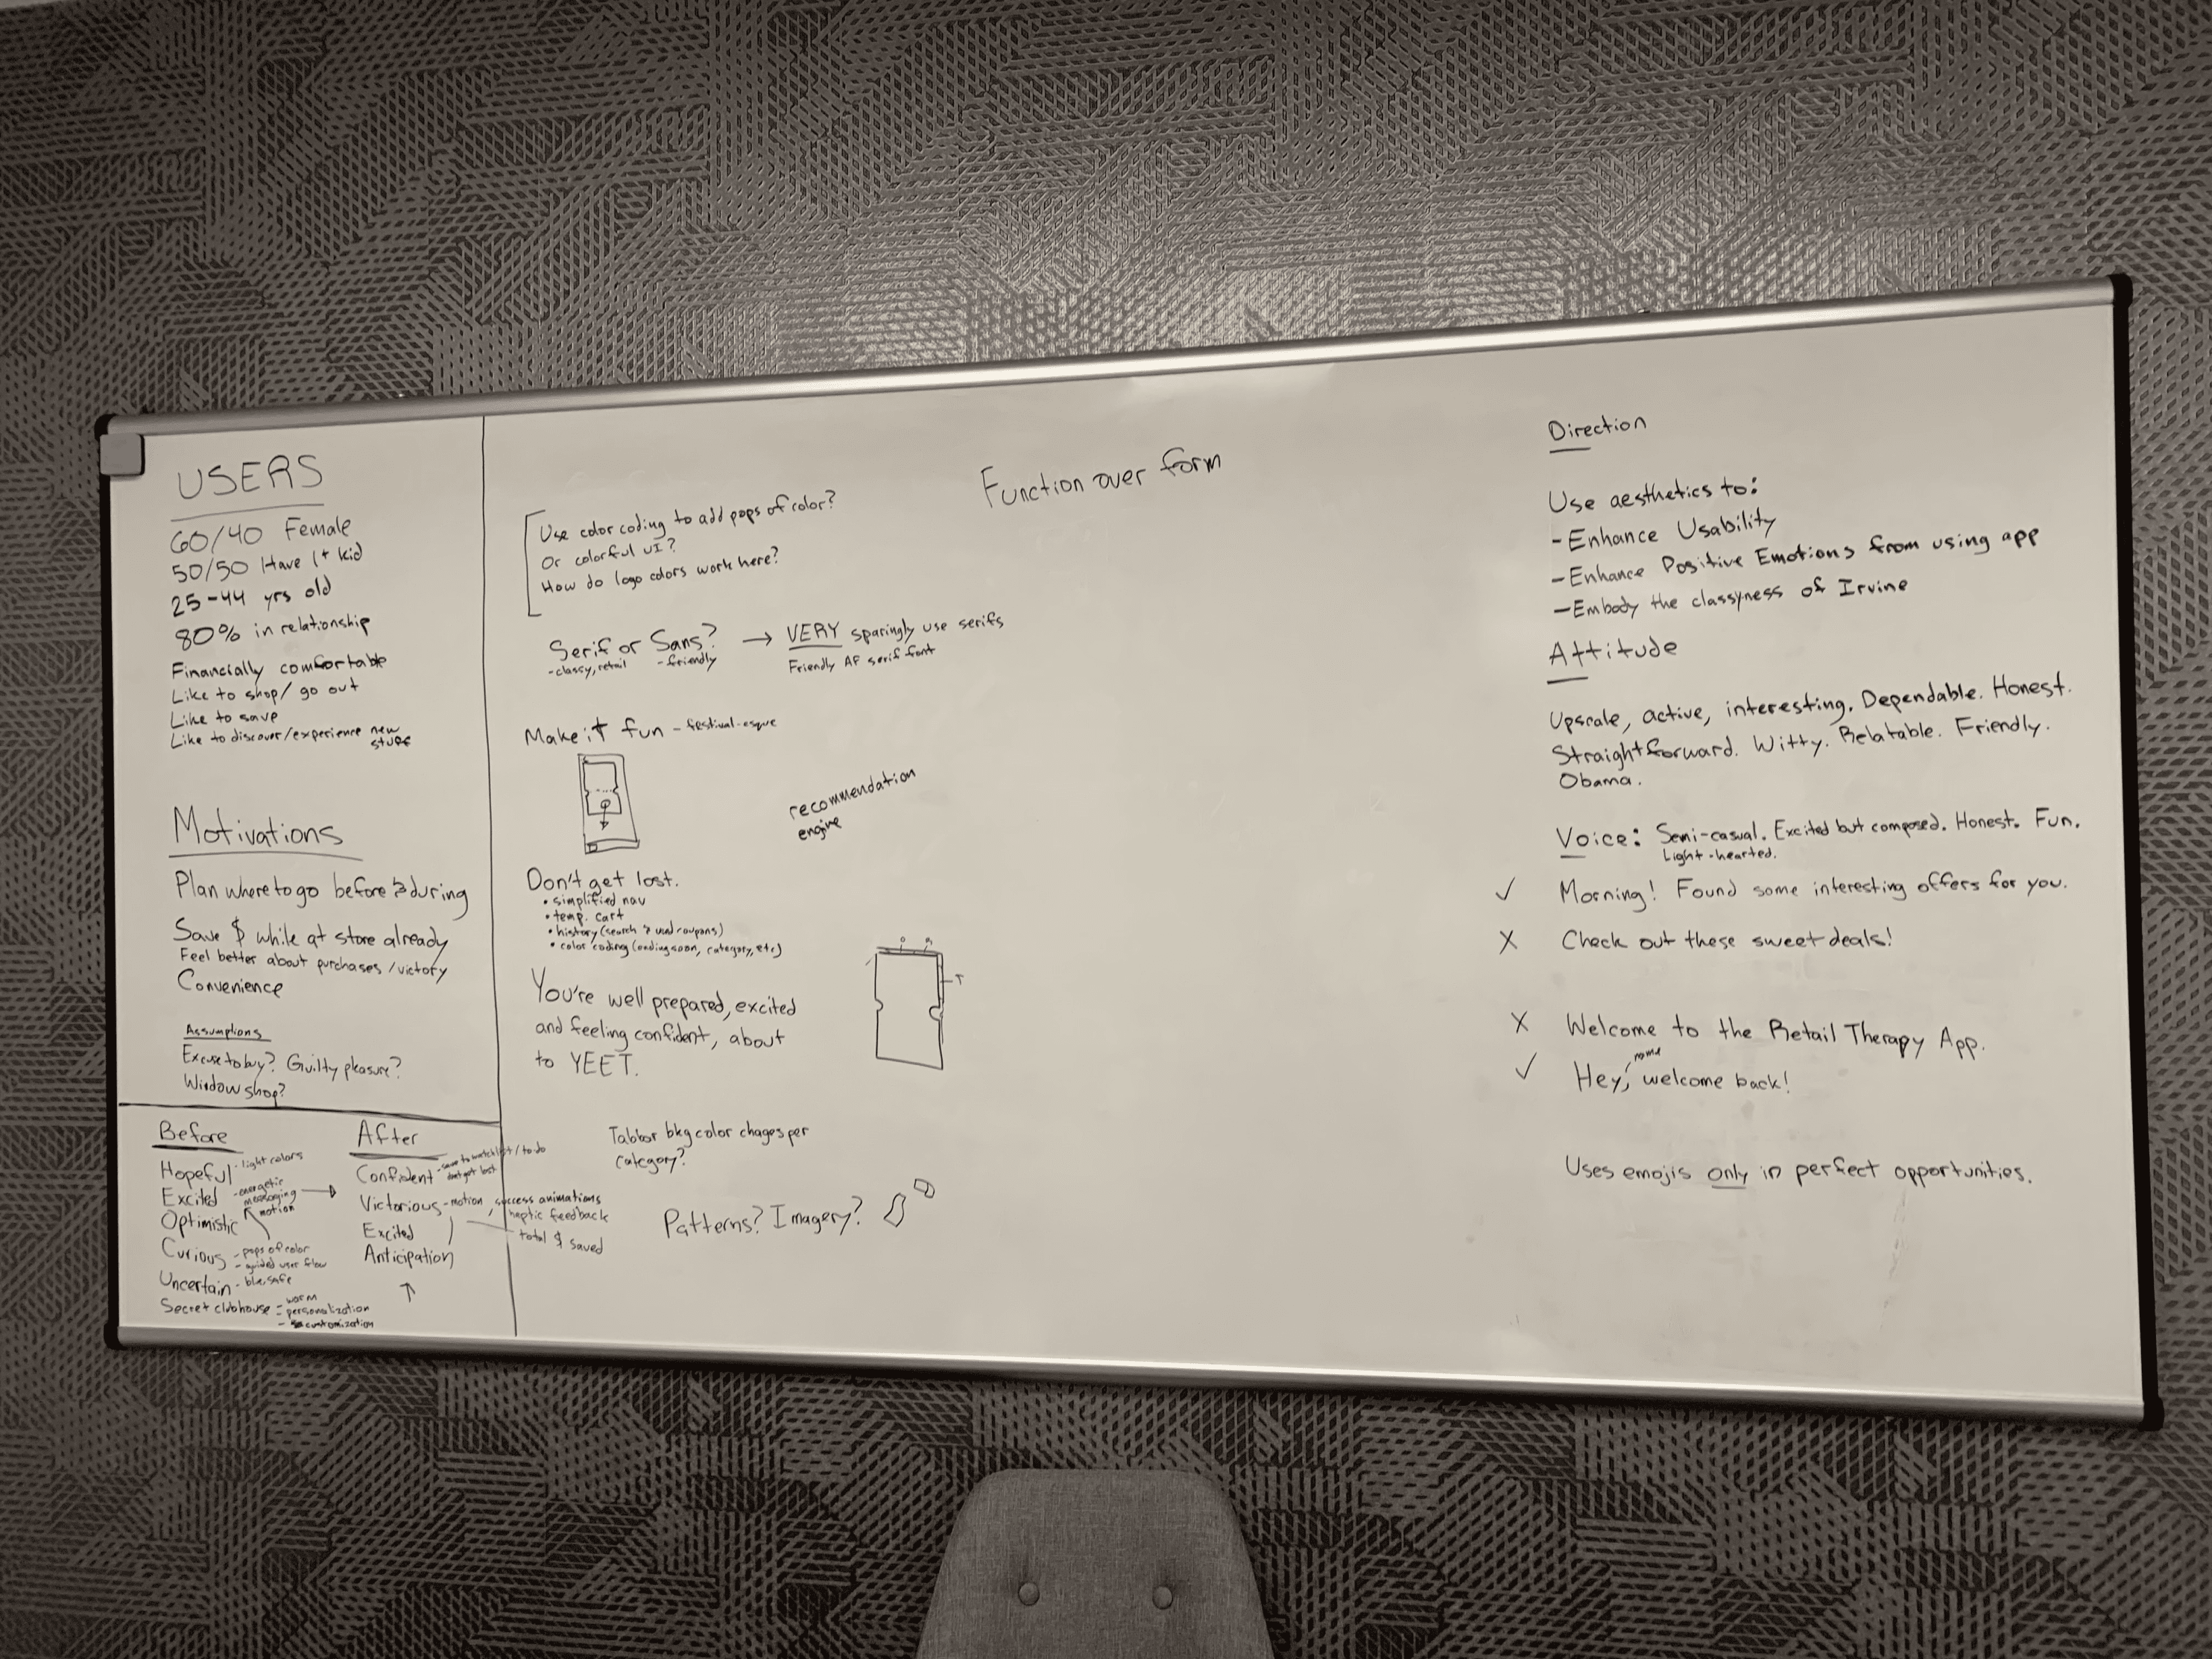 USERS
60/40 Female
50/50 Have 1+ kid
25-44 yrs old
80% in relationship
Financially comfortable
Like to shop/go out
Like to save
Like to discover/experience new
stuff
Motivations
Plan where to go before & during
Save $ while at store already
Feel better about purchases/victory
Convenience
Assumptions
Excuse to buy? Guilty pleasure?
Window shop?
Before
Hopeful - light colors
Excited - energetic
messaging
motion
Optimistic
Curious - pops of color
- guided user flow
Uncertain - blue, safe
Secret clubhouse - warm
- personalization
- customization
After
Confident - save to watchlist/to do
don't get lost
Victorious - motion, success animations
haptic feedback
total $ saved
Excited
Anticipation
Use color coding to add pops of color?
Or colorful UI?
How do logo colors work here?
Serif or Sans? → VERY sparingly use serifs
-classy, retail -friendly Friendly AF serif font
Make it fun - festival-esque
recommendation
engine
Don't get lost.
• simplified nav
• temp. cart
• history (search & used coupons)
• color coding (ending soon, category, etc)
You're well prepared, excited
and feeling confident, about
to YEET.
Tabbar bkg color chages per
category?
Patterns? Imagery?
Function over form
Direction
Use aesthetics to:
- Enhance Usability
- Enhance Positive Emotions from using app
- Embody the classyness of Irvine
Attitude
Upscale, active, interesting. Dependable. Honest.
Straightforward. Witty. Relatable. Friendly.
Obama.
Voice: Semi-casual. Excited but composed. Honest. Fun.
Light-hearted.
✓ Morning! Found some interesting offers for you.
X Check out these sweet deals!
X Welcome to the Retail Therapy App.
name
✓ Hey, welcome back!
Uses emojis only in perfect opportunities.